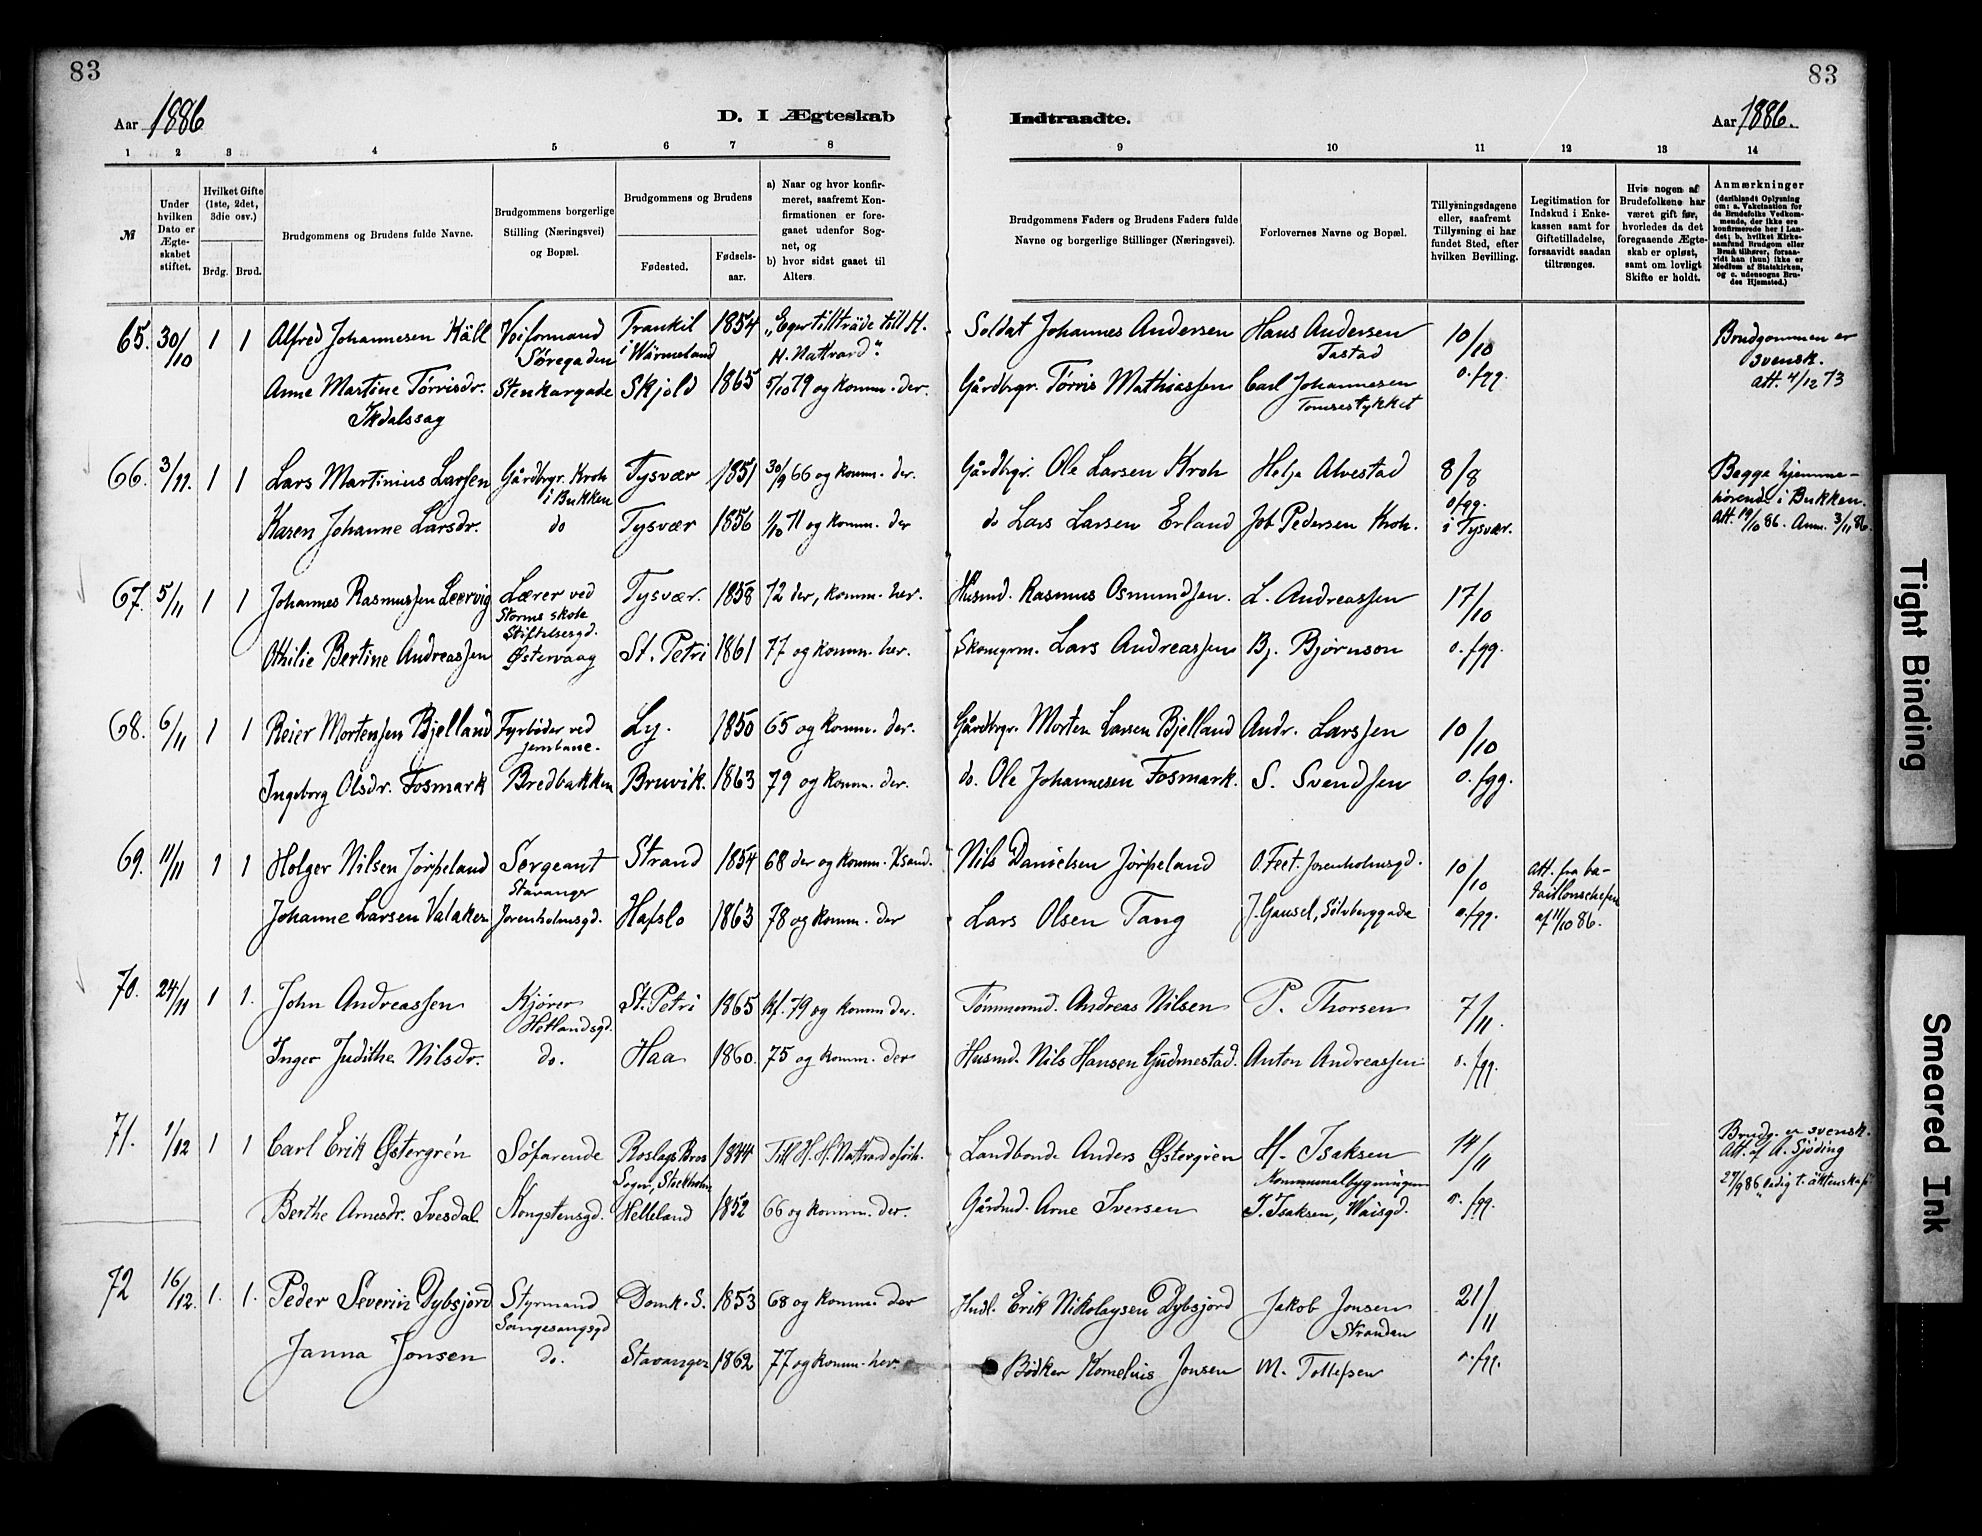 83
83
Aar 1886
D. I Ægteskab
Indtraadte.
Aar 1886.
1 2 3 4 5 6 7 8
9 10 11 12 13 14
№
Under hvilken Dato er Ægteskabet stiftet.
Hvilket Gifte (1ste, 2det, 3die osv.)
Brdg. Brud.
Brudgommens og Brudens fulde Navne.
Brudgommens borgerlige Stilling (Næringsvei) og Bopæl.
Brudgommens og Brudens
Fødested.
Fødsels-aar.
a) Naar og hvor konfirmeret, saafremt Konfirmationen er foregaaet udenfor Sognet, og
b) hvor sidst gaaet til Alters.
Brudgommens Faders og Brudens Faders fulde Navne og borgerlige Stillinger (Næringsvei).
Forlovernes Navne og Bopæl.
Tillysningsdagene eller, saafremt Tillysning ei har fundet Sted, efter hvilken Bevilling.
Legitimation for Indskud i Enkekassen samt for Giftetilladelse, forsaavidt saadan tiltrænges.
Hvis nogen af Brudefolkene har været gift før, hvorledes da det foregaaende Ægteskab er opløst, samt om lovligt Skifte er holdt.
Anmærkninger (deriblandt Oplysning om: a. Vakcination for de Brudefolks Vedkommende, der ikke ere konfirmerede her i Landet; b. hvilket Kirkesamfund Brudgom eller Brud tilhører, forsaavidt han (hun) ikke er Medlem af Statskirken, og c. udensogns Brudes Hjemsted.)
65. 30/10 1 1 Alfred Johannesen Käll Trankil 1854 "Eger tillträde till H. Soldat Johannes Andersen Hans Andersen 10/10 Brudgommen er
Søregaden i Wärmeland H. Nattvard". Tastad svensk.
Anne Martine Tørrisdr. Stenkargade Skjold 1865 5/10 79 og komm. der. Gårdbrgr. Tørris Mathiassen Carl Johannesen o. fgg. Att. 4/12 73
66. 3/11. 1 1 Lars Martinius Larsen Gårdbrgr. Kroh Tysvær 1851 30/9 66 og komm. der. Gårdbrgr. Ole Larsen Kroh Helje Alvestad 8/8 Begge hjemme-
i Bukken o fgg. hørende i Bukken.
Karen Johanne Larsdr. do Tysvær 1856 1/10 71 og komm. der do Lars Larsen Erland Job Pedersen Kroh. i Tysvær. Att. 19/10 86. Anm. 3/11 86.
67. 5/11 1 1 Johannes Rasmussen Leervig Lærer ved Tysvær. 1858 72 der, komm. her. Husmd. Rasmus Osmundsen. L. Andreassen 17/10
Storms skole
Stiftelsesgd.
Othilie Bertine Andreassen Østervaag St. Petri 1861 77 og komm. her. Skomgrm. Lars Andreassen Bj. Bjørnson o. fgg.
68. 6/11 1 1 Reier Mortensen Bjelland Fyrbøder ved Ly. 1850 65 og komm. der. Gårdbrgr. Morten Larsen Bjelland Andr. Larssen 10/10
jernbane.
Ingeborg Olsdr. Fosmark Bredbakken Bruvik. 1863 79 og komm. der. do. Ole Johannesen Fosmark. S. Svendsen o. fgg.
69. 11/11 1 1 Holger Nilsen Jørpeland Sergeant Strand 1854 68 der og komm. Ksand. Nils Danielsen Jørpeland O. Feet. Jorenholmsgd. 10/10 Att. fra ba-
Stavanger taillonschefen
Johanne Larsen Valaken Jorenholmsgd. Hafslo 1863 78 og komm. der Lars Olsen Tang J. Gausel, Sølvberggade o. fgg. af 11/10 86.
70. 24/11 1 1. John Andreassen Kjører St. Petri 1865 kf. 79 og komm der. Tømmermd. Andreas Nilsen P. Thorsen 7/11
Hetlandsgd.
Inger Judithe Nilsdr. do. Haa 1860. 75 og komm. der Husmd. Nils Hansen Gudmestad. Anton Andreassen o. fgg.
71. 1/12 1 1 Carl Erik Østergrén Søfarende Roslags Bros 1844 Till H. H. Nattvard Landbonde Anders Østergrén H. Isaksen 14/11 Brudg. er svensk.
Sogn, Stockholm Kommunalbygningen Att. af A. Sjöding
Berthe Arnesdr. Ivesdal Kongstensgd. Helleland 1852 66 og komm. der. Gårdmd. Arne Iversen I. Isaksen, Waisgd. o. fgg. 27/9 86 "ledig t. äktenskap"
72 16/12. 1. 1. Peder Severin Dybsjord Styrmand Domk. S. 1853 68 og komm. der Erik Nikolaysen Dybsjord Jakob Jonsen 21/11
Stranden
Janna Jonsen do. Stavanger 1862 77 og komm. her. Bødker Kornelius Jonsen M. Tollefsen o. fgg.
Tight Binding
Smeared Ink